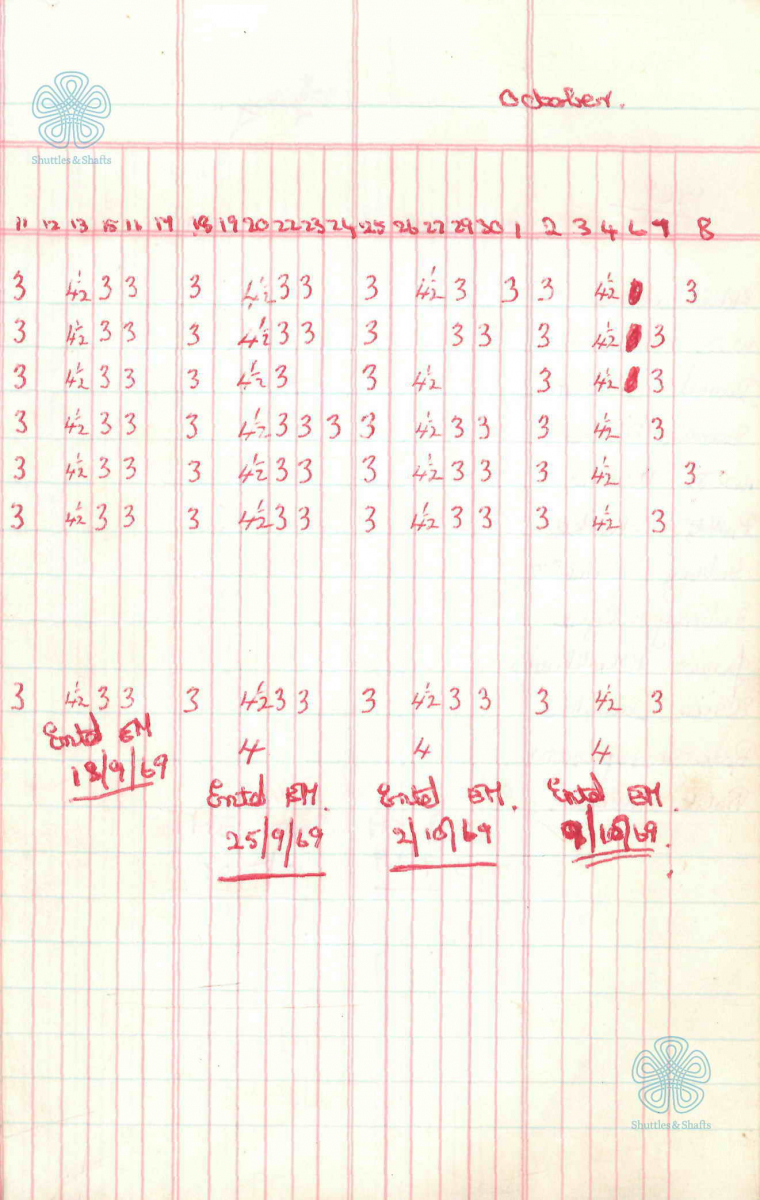 October.
Shuttles & Shafts
11 12 13 15 16 17 18 19 20 22 23 24 25 26 27 29 30 1 2 3 4 6 7 8
3 4½ 3 3 3 4½ 3 3 3 4½ 3 3 3 4½ 3
3 4½ 3 3 3 4½ 3 3 3 3 3 3 4½ 3
3 4½ 3 3 3 4½ 3 3 4½ 3 4½ 3
3 4½ 3 3 3 4½ 3 3 3 3 4½ 3 3 3 4½ 3
3 4½ 3 3 3 4½ 3 3 3 4½ 3 3 3 4½ 3
3 4½ 3 3 3 4½ 3 3 3 4½ 3 3 3 4½ 3
3 4½ 3 3 3 4½ 3 3 3 4½ 3 3 3 4½ 3
Entd EM
18/9/69
4 4 4
Entd EM. Entd EM. Entd EM.
25/9/69 2/10/69 /10/69.
Shuttles & Shafts